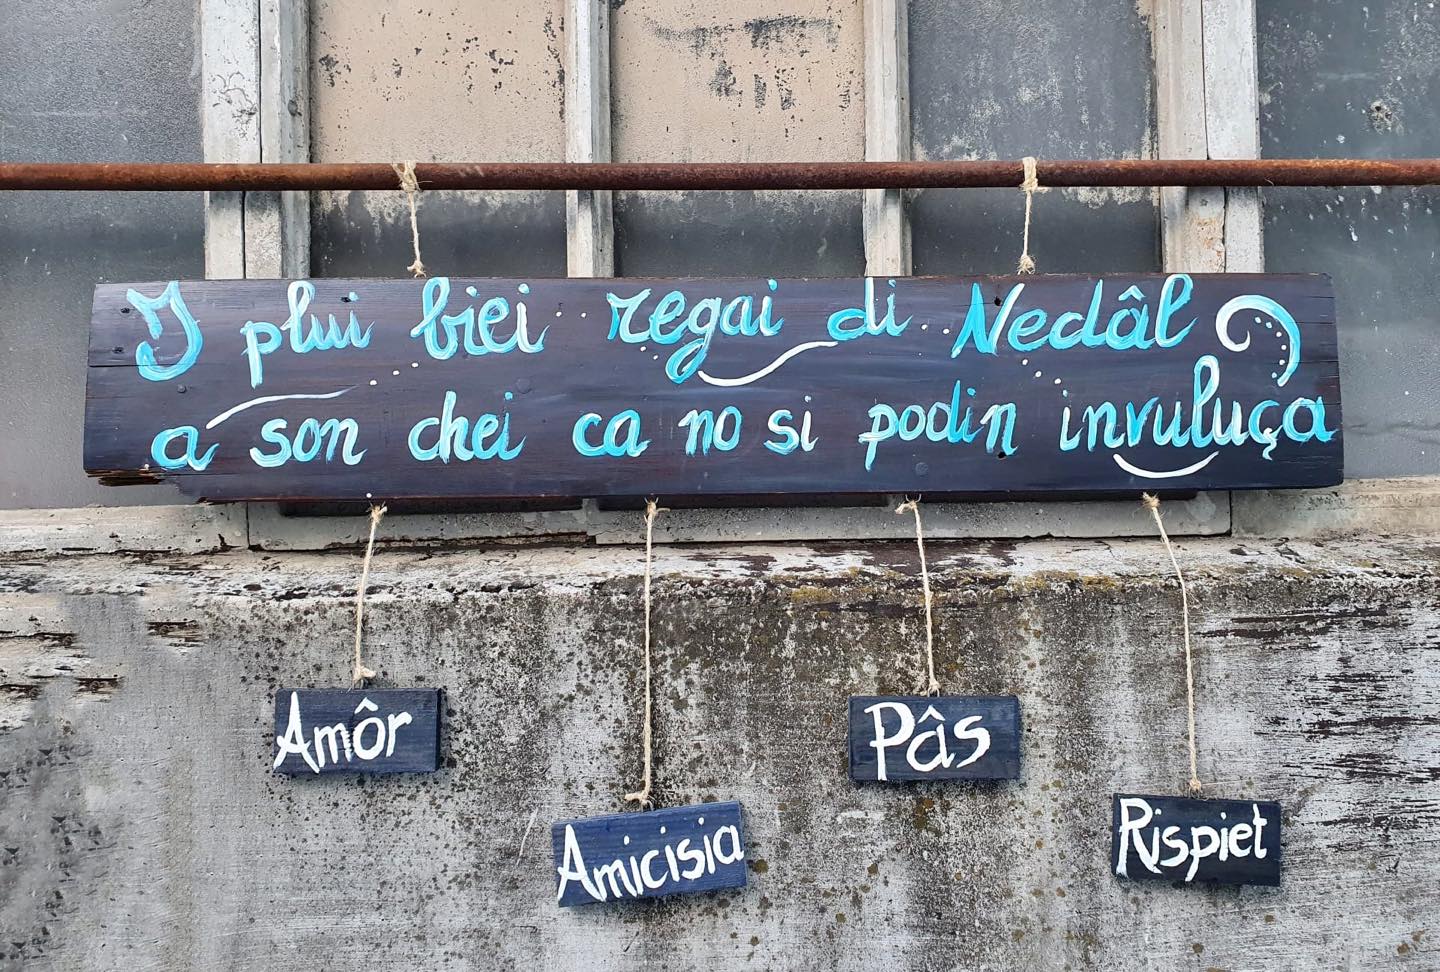 I plui biei regai di Nedâl
a son chei ca no si podin invuluça
Amôr
Amicisia
Pâs
Rispiet